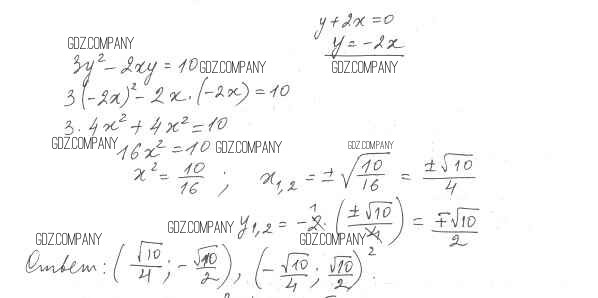 y + 2x = 0
GDZ.COMPANY
y = -2x
3y² - 2xy = 10 GDZ.COMPANY GDZ.COMPANY
3(-2x)² - 2x·(-2x) = 10
3·4x² + 4x² = 10
GDZ.COMPANY 16x² = 10 GDZ.COMPANY GDZ.COMPANY
x² = 10/16 ; x₁,₂ = ±√(10/16) = ±√10/4
GDZ.COMPANY y₁,₂ = -2·(±√10/4) = ∓√10/2
1
GDZ.COMPANY GDZ.COMPANY 2
Ответ: (√10/4; -√10/2), (-√10/4; √10/2)